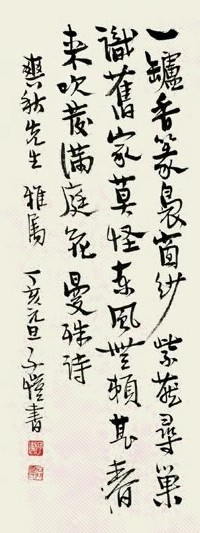 一罏香篆裊窗紗 紫燕尋巢
識舊家莫怪東風無賴甚春
来吹發滿庭花 曼殊詩
爽秋先生 雅屬 丁亥元旦 子愷書